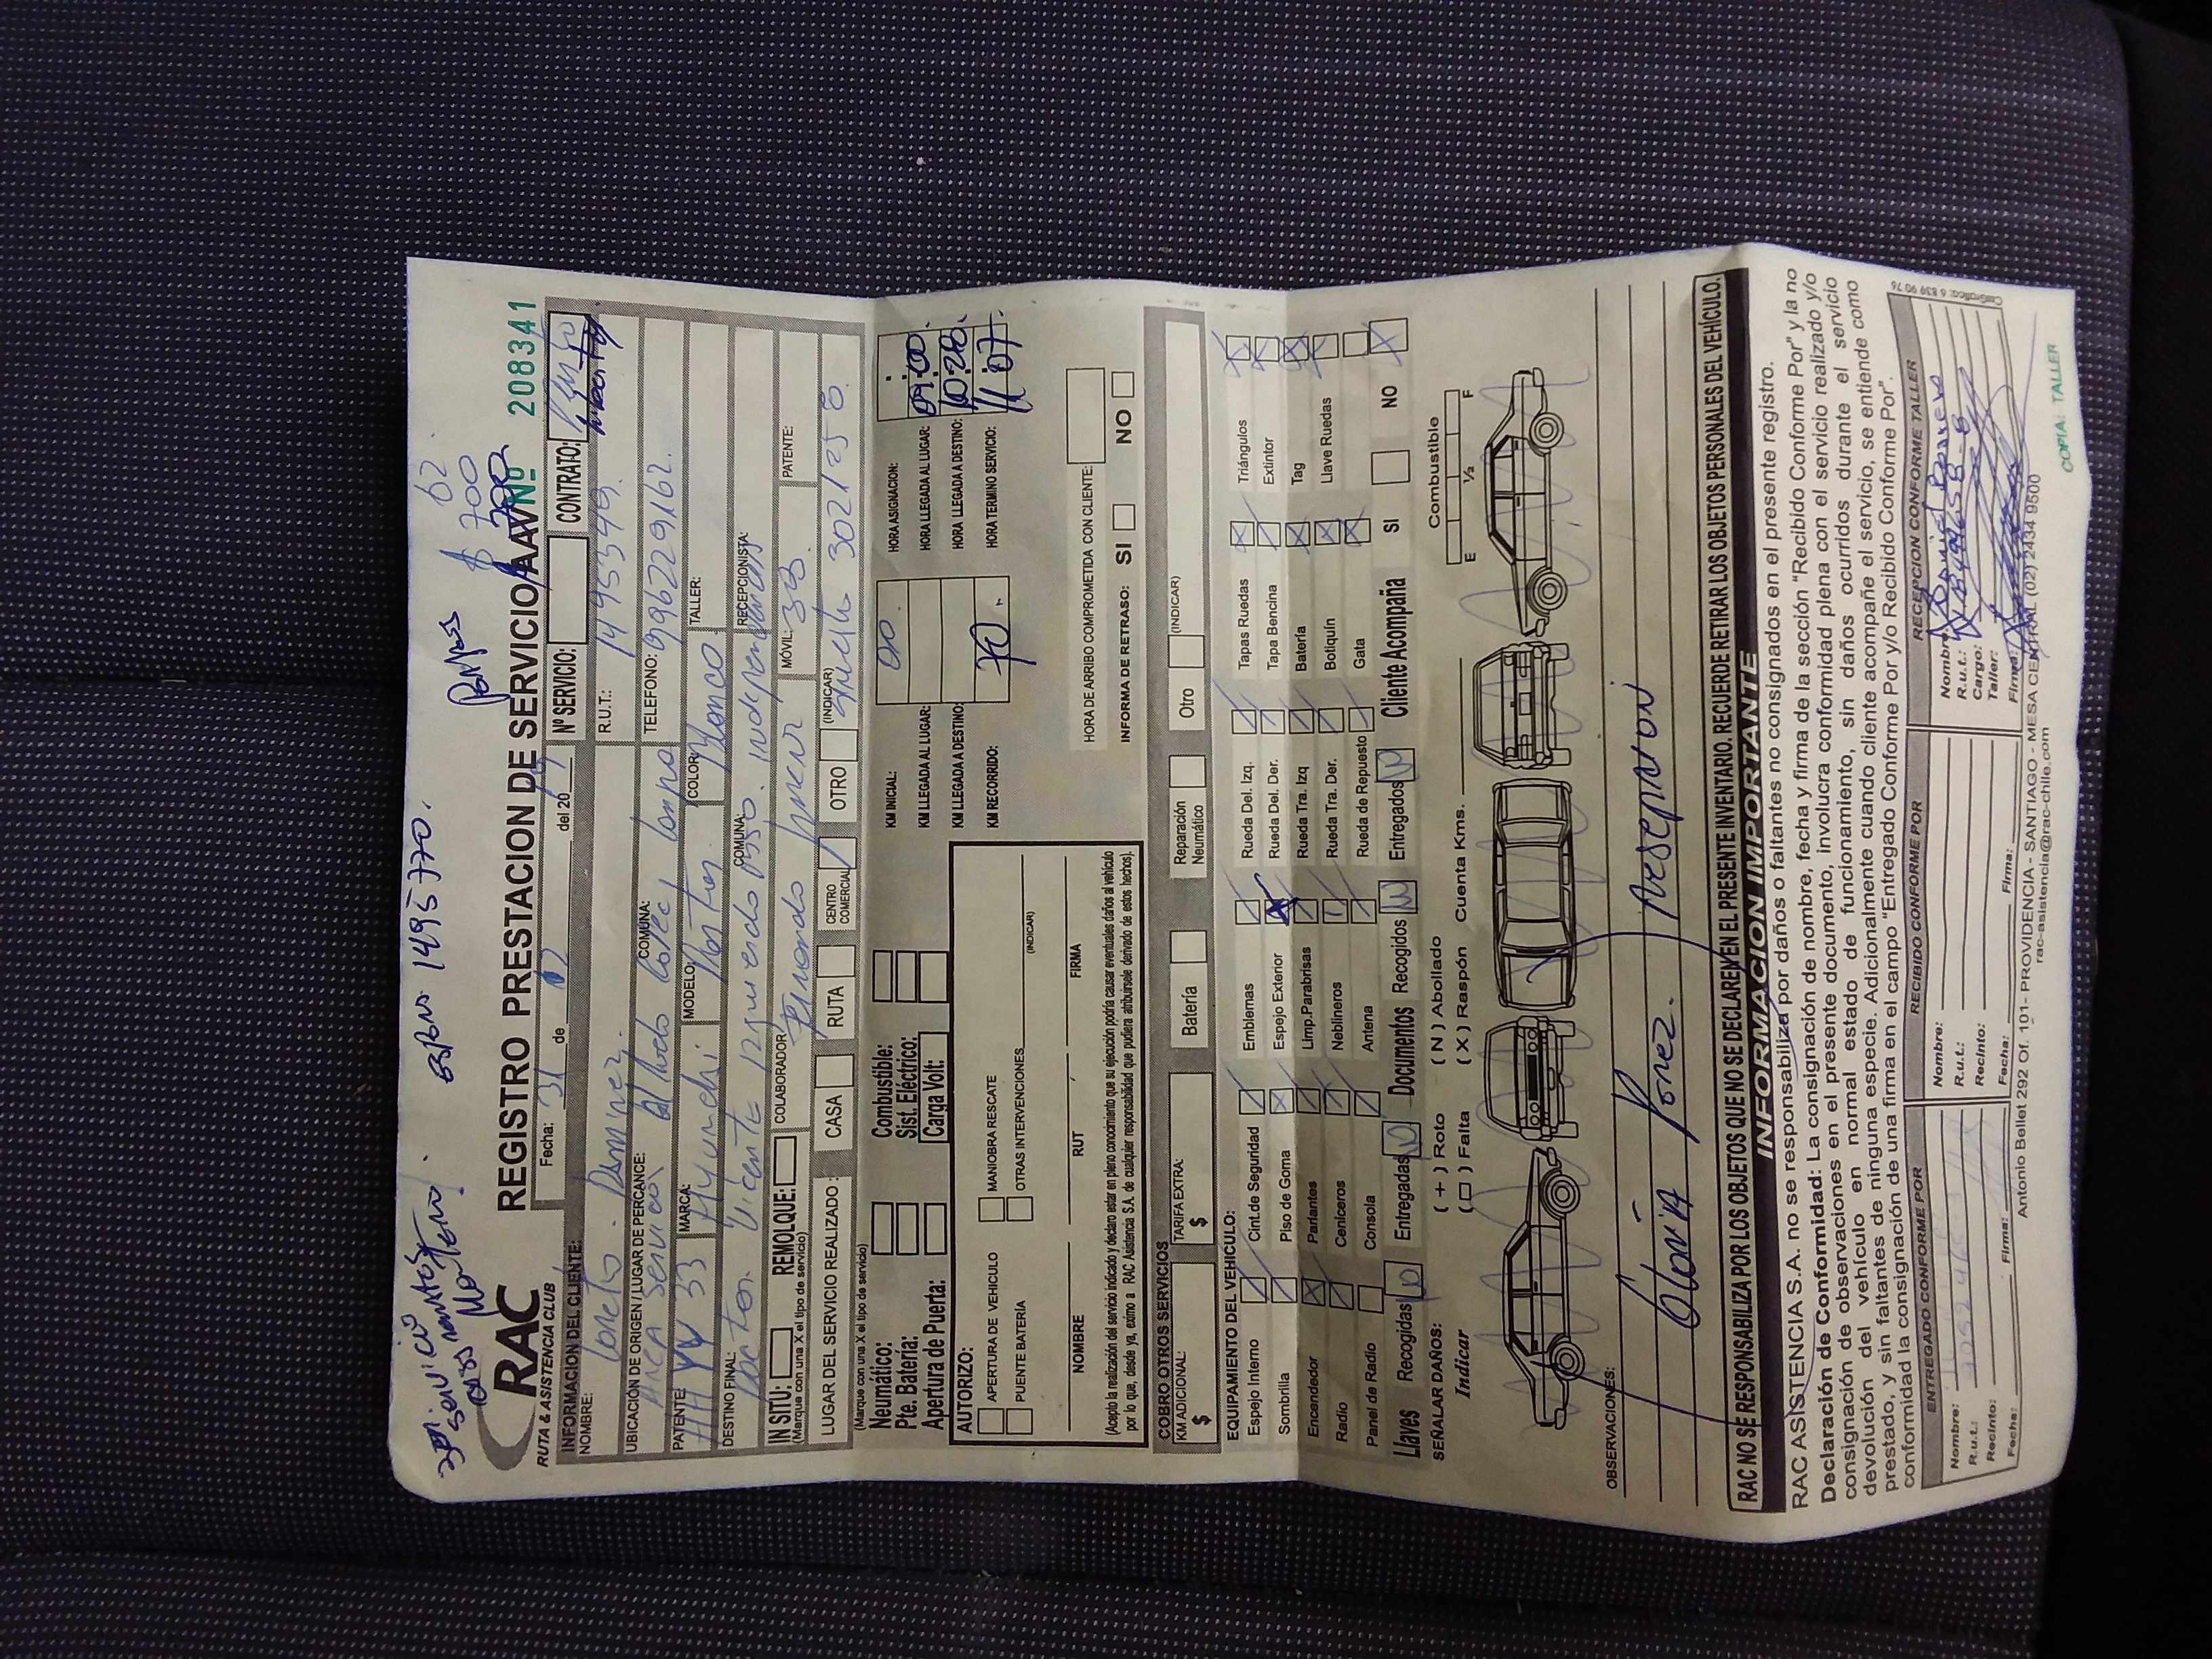 ESBNS 1495770.
62.
$ 700
RAC
RUTA & ASISTENCIA CLUB
REGISTRO PRESTACION DE SERVICIO AAV Nº 208341
Fecha: 31 de del 20
Nº SERVICIO:
CONTRATO:
INFORMACION DEL CLIENTE:
NOMBRE: Loreto
R.U.T.:
UBICACIÓN DE ORIGEN / LUGAR DE PERCANCE:
COMUNA:
TELEFONO: 996229162.
Area Servicio
PATENTE:
MARCA: Hyundai
MODELO:
COLOR: Blanco
TALLER:
DESTINO FINAL:
COMUNA: independencia
RECEPCIONISTA:
IN SITU:
REMOLQUE:
(Marque con una X el tipo de servicio)
COLABORADOR:
MÓVIL: 33.
PATENTE:
LUGAR DEL SERVICIO REALIZADO :
CASA
RUTA
CENTRO COMERCIAL
OTRO
(INDICAR)
(Marque con una X el tipo de servicio)
Neumático:
Combustible:
Pte. Batería:
Sist. Eléctrico:
Apertura de Puerta:
Carga Volt:
KM INICIAL:
KM LLEGADA AL LUGAR:
KM LLEGADA A DESTINO:
KM RECORRIDO: 70.
HORA ASIGNACION:
HORA LLEGADA AL LUGAR: 09:00
HORA LLEGADA A DESTINO:
HORA TERMINO SERVICIO: 11 07.
AUTORIZO:
APERTURA DE VEHICULO
MANIOBRA RESCATE
PUENTE BATERÍA
OTRAS INTERVENCIONES
(INDICAR)
NOMBRE
RUT
FIRMA
(Acepto la realización del servicio indicado y declaro estar en pleno conocimiento que su ejecución podría causar eventuales daños al vehículo
por lo que, desde ya, eximo a RAC Asistencia S.A. de cualquier responsabilidad que pudiera atribuírsele derivado de estos hechos).
HORA DE ARRIBO COMPROMETIDA CON CLIENTE:
INFORMA DE RETRASO: SI NO
COBRO OTROS SERVICIOS
KM ADICIONAL: $
TARIFA EXTRA: $
Batería
Reparación Neumático
Otro
(INDICAR)
EQUIPAMIENTO DEL VEHICULO:
Espejo Interno
Cint.de Seguridad
Emblemas
Rueda Del. Izq.
Tapas Ruedas
Triángulos
Sombrilla
Piso de Goma
Espejo Exterior
Rueda Del. Der.
Tapa Bencina
Extintor
Encendedor
Parlantes
Limp.Parabrisas
Rueda Tra. Izq
Batería
Tag
Radio
Ceniceros
Neblineros
Rueda Tra. Der.
Botiquín
Llave Ruedas
Panel de Radio
Consola
Antena
Rueda de Repuesto
Gata
Llaves Recogidas Entregadas Documentos Recogidos Entregados Cliente Acompaña SI NO
SEÑALAR DAÑOS:
Indicar
( + ) Roto ( N ) Abollado
( □ ) Falta ( X ) Raspón
Cuenta Kms.
Combustible
E ½ F
OBSERVACIONES:
Gloria Perez.
RAC NO SE RESPONSABILIZA POR LOS OBJETOS QUE NO SE DECLAREN EN EL PRESENTE INVENTARIO. RECUERDE RETIRAR LOS OBJETOS PERSONALES DEL VEHÍCULO.
INFORMACION IMPORTANTE
RAC ASISTENCIA S.A. no se responsabiliza por daños o faltantes no consignados en el presente registro.
Declaración de Conformidad: La consignación de nombre, fecha y firma de la sección "Recibido Conforme Por" y la no
consignación de observaciones en el presente documento, involucra conformidad plena con el servicio realizado y/o
devolución del vehículo en normal estado de funcionamiento, sin daños ocurridos durante el servicio
prestado, y sin faltantes de ninguna especie. Adicionalmente cuando cliente acompañe el servicio, se entiende como
conformidad la consignación de una firma en el campo "Entregado Conforme Por y/o Recibido Conforme Por".
ENTREGADO CONFORME POR
RECIBIDO CONFORME POR
RECEPCION CONFORME TALLER
Nombre:
R.u.t.:
Recinto:
Fecha:
Firma:
Nombre:
R.u.t.:
Recinto:
Fecha:
Firma:
Nombre:
R.u.t.:
Cargo:
Taller:
Firma:
Antonio Bellet 292 Of. 101- PROVIDENCIA - SANTIAGO - MESA CENTRAL (02) 2434 9500
rac-asistencia@rac-chile.com
COPIA: TALLER